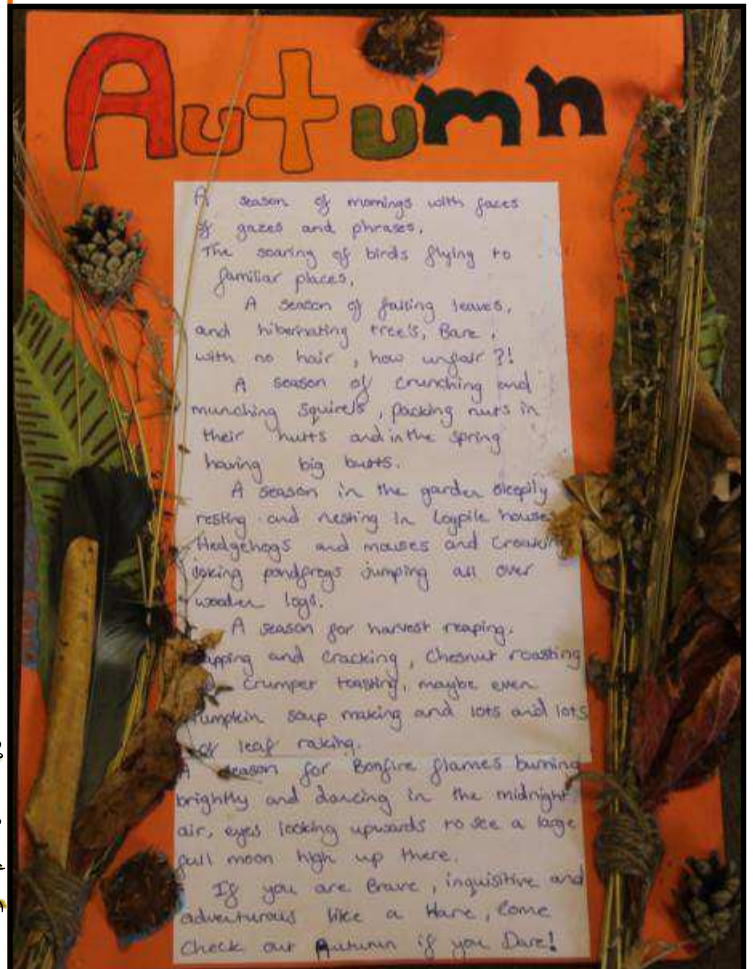 Autumn
A season of mornings with faces
of gazes and phrases,
The soaring of birds flying to
familiar places,
A season of falling leaves,
and hibernating tree's, Bare,
with no hair, how unfair ?!
A season of crunching and
munching squirels, packing nuts in
their hutts and in the spring
having big butts.
A season in the garden sleepily
resting and nesting in logpile
Hedgehogs and mouses and
pondfrogs jumping all over
wooden logs.
A season for harvest reaping,
and cracking, Chesnut roasting
crumpet toasting, maybe even
soup making and lots and lots
of leaf raking.
season for Bonfire flames burning
brightly and dancing in the midnight
air, eyes looking upwards to see a large
full moon high up there.
If you are Brave, inquisitive and
adventurous like a Hare, Come
Check out Autumn if you Dare!